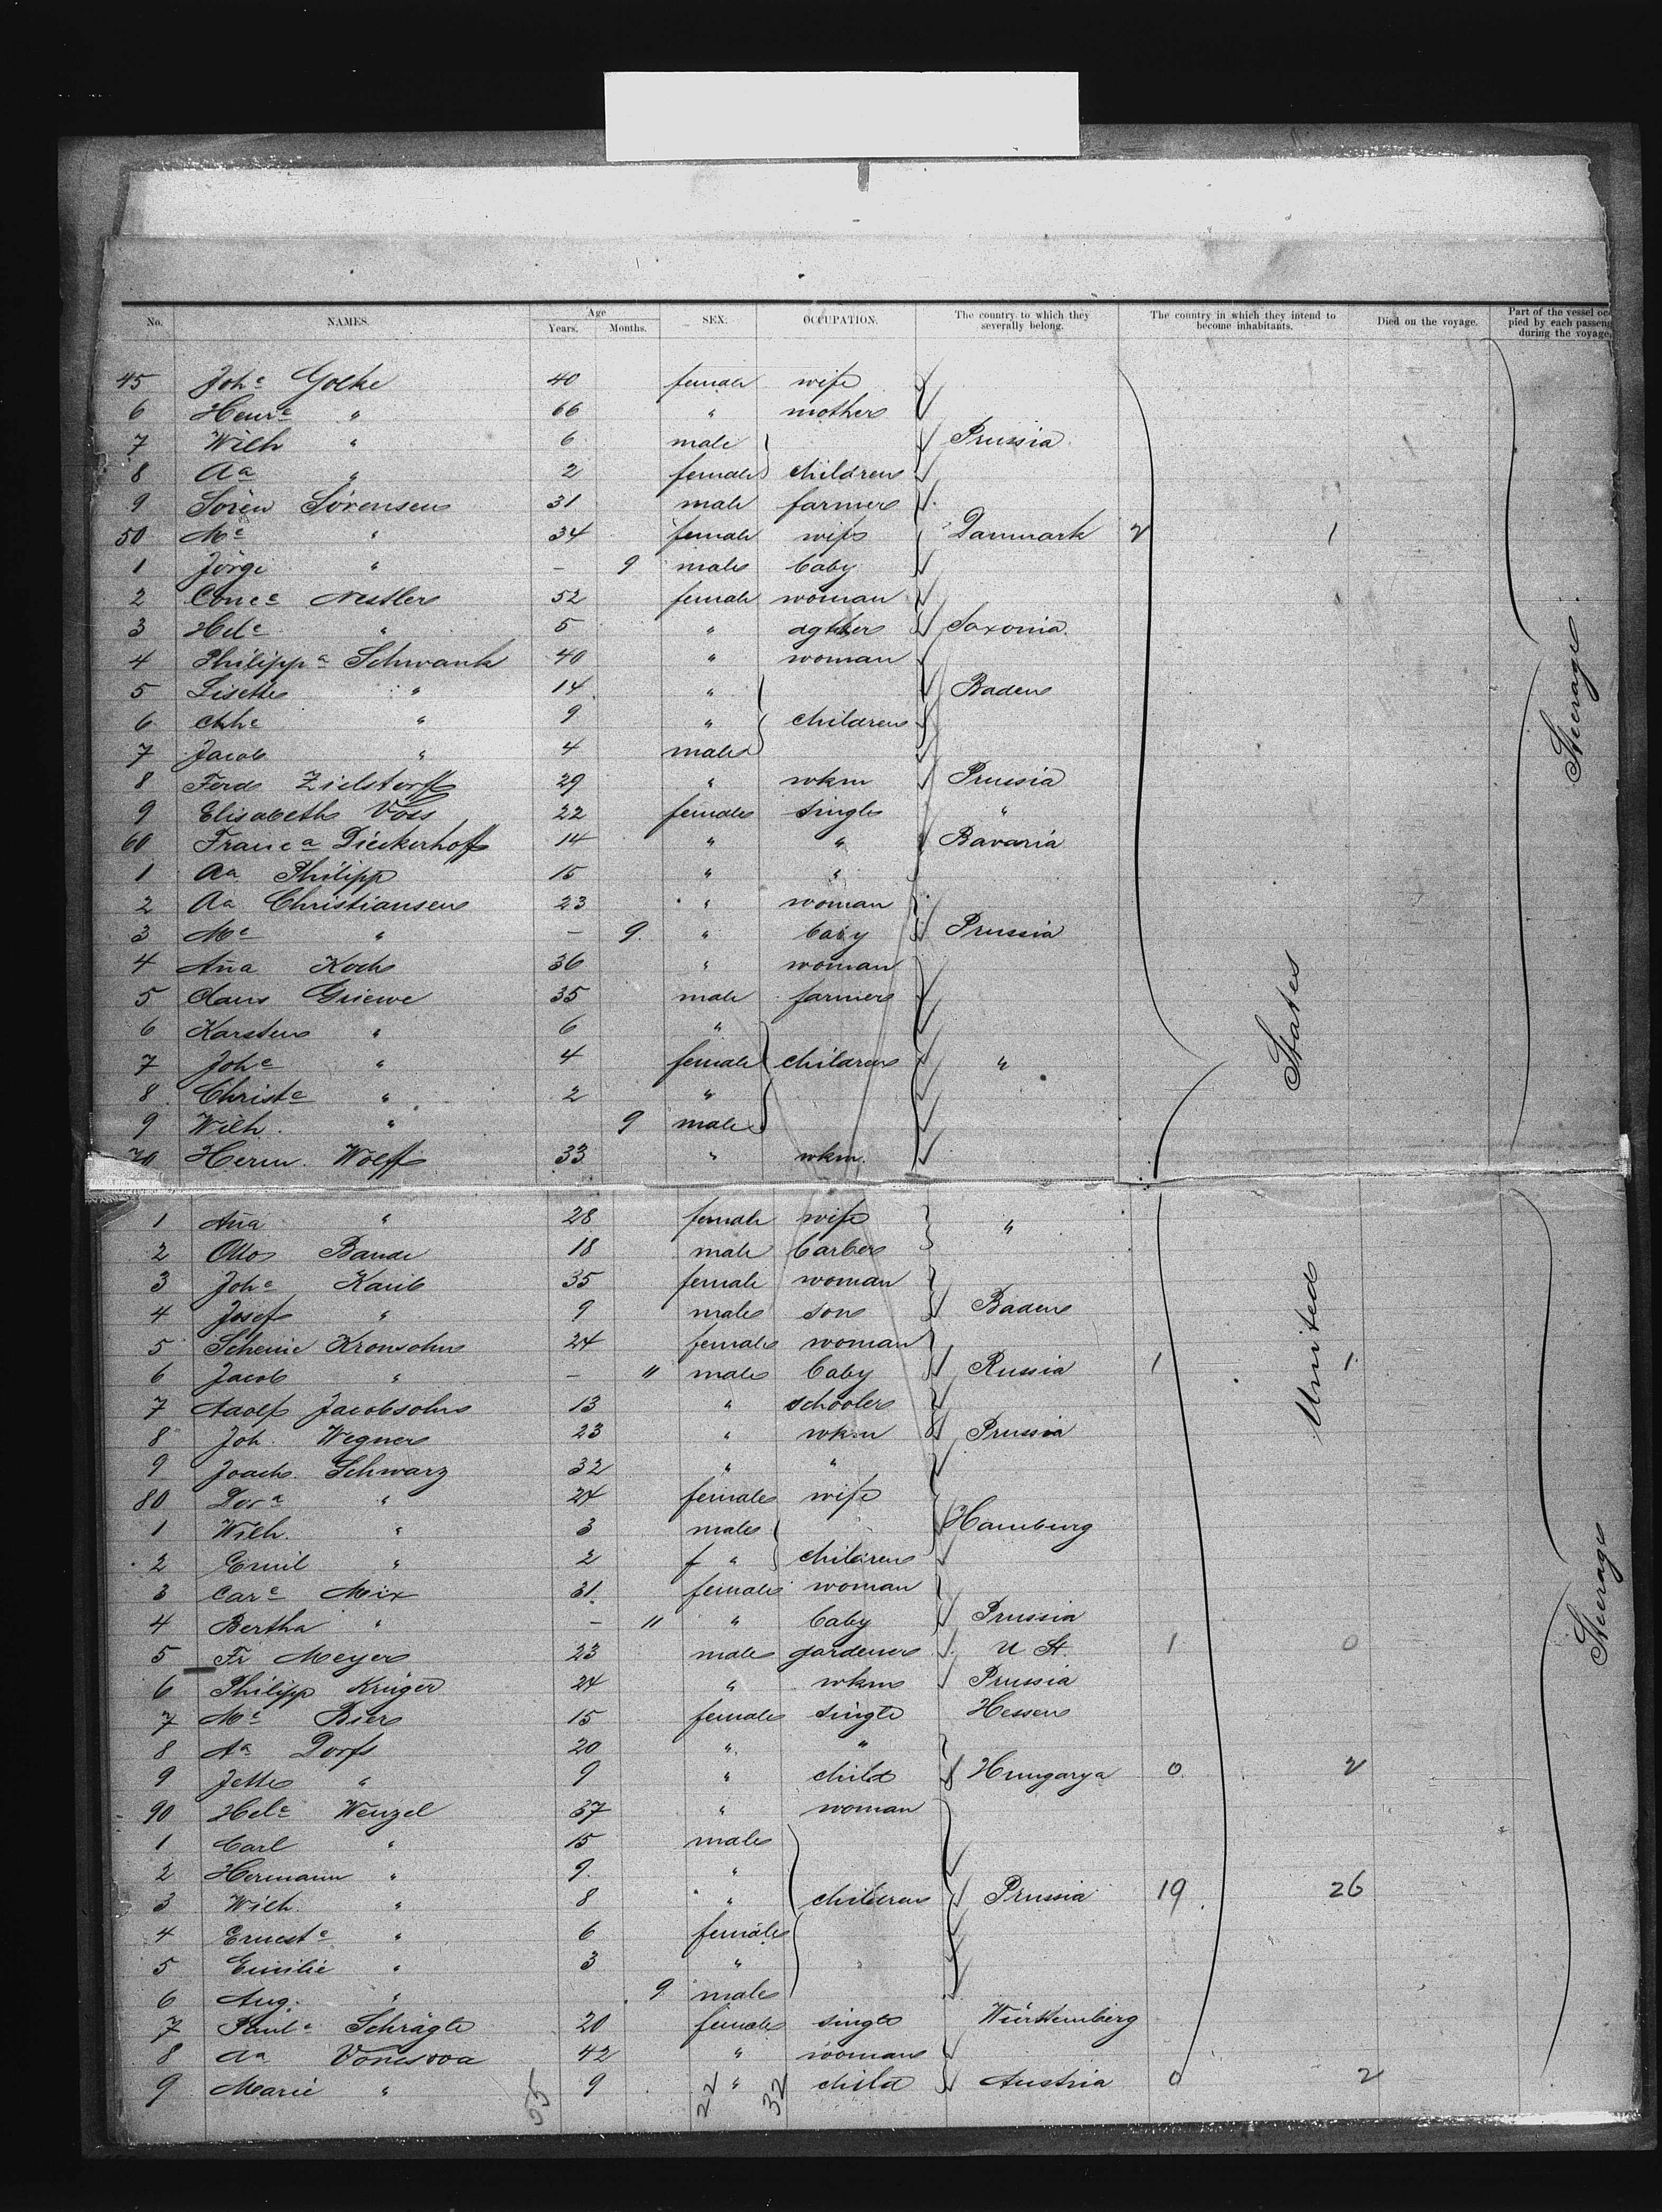 No. NAMES. Age Years. Months. SEX. OCCUPATION. The country to which they severally belong. The country in which they intend to become inhabitants. Died on the voyage. Part of the vessel occ pied by each passeng during the voyage.
45 Johe Golke 40 female wife
6 Henre " 66 " mother
7 Wilh " 6 male Prussia
8 Aa " 2 female children
9 Sören Sörensen 31 male farmer
50 Me " 34 female wife Danmark 2 1
1 Jörge " – 9 male baby
2 Conce Nestler 52 female woman
3 Hele " 5 " dgther Saxonia.
4 Philippa Schwank 40 " woman
5 Lisette " 14 " Baden
6 " 9 " children
7 Jacob " 4 male
8 Ferd Zielstorff 29 " wkm Prussia
9 Elisabeth Voss 22 female single "
60 Franca Dieckerhoff 14 " " Bavaria
1 Aa Philipp 15 " "
2 Aa Christiansen 23 " woman
3 Me " – 9. " baby Prussia
4 Aña Koch 36 " woman
5 Claus Griewe 35 male farmer
6 Karsten " 6 "
7 Johe " 4 female children "
8 Christe " 2 "
9 Wilh. " 9 male
70 Herm. Wolff 33 " wkm.
1 Aña " 28 female wife "
2 Otto Bande 18 male barber
3 Johe Kaub 35 female woman
4 Josef " 9 male son Baden
5 Scheine Kronsohn 24 female woman
6 Jacob " – 11 male baby Russia 1 1
7 Adolf Jacobsohn 13 " schooler
8 Joh. Wegner 23 " wkm Prussia
9 Joach. Schwarz 32 " "
80 Dora " 24 female wife
1 Wilh. " 3 male Hamburg
2 Emil " 2 f " children
3 Care Mix 31. female woman
4 Bertha " – 11 " baby Prussia
5 Fr Meyer 23 male gardener U St. 1 0
6 Philipp Krüger 24 " wkm Prussia
7 Me Bier 15 female single Hessen
8 Aa Dorfs 20 " "
9 Jette " 9 " child Hungarya 0 2
90 Hele Wenzel 37 " woman
1 Carl " 15 male
2 Hermann " 9. "
3 Wilh. " 8 " children Prussia 19 26
4 Erneste " 6 female
5 Emilie " 3 "
6 Aug. " 9 male
7 Paule Schrägle 20 female single Württemberg
8 Aa Vonesova 42 " woman
9 Marie " 9 " child Austria 0 2
55 22 32
United States
Steerage.
Steerage